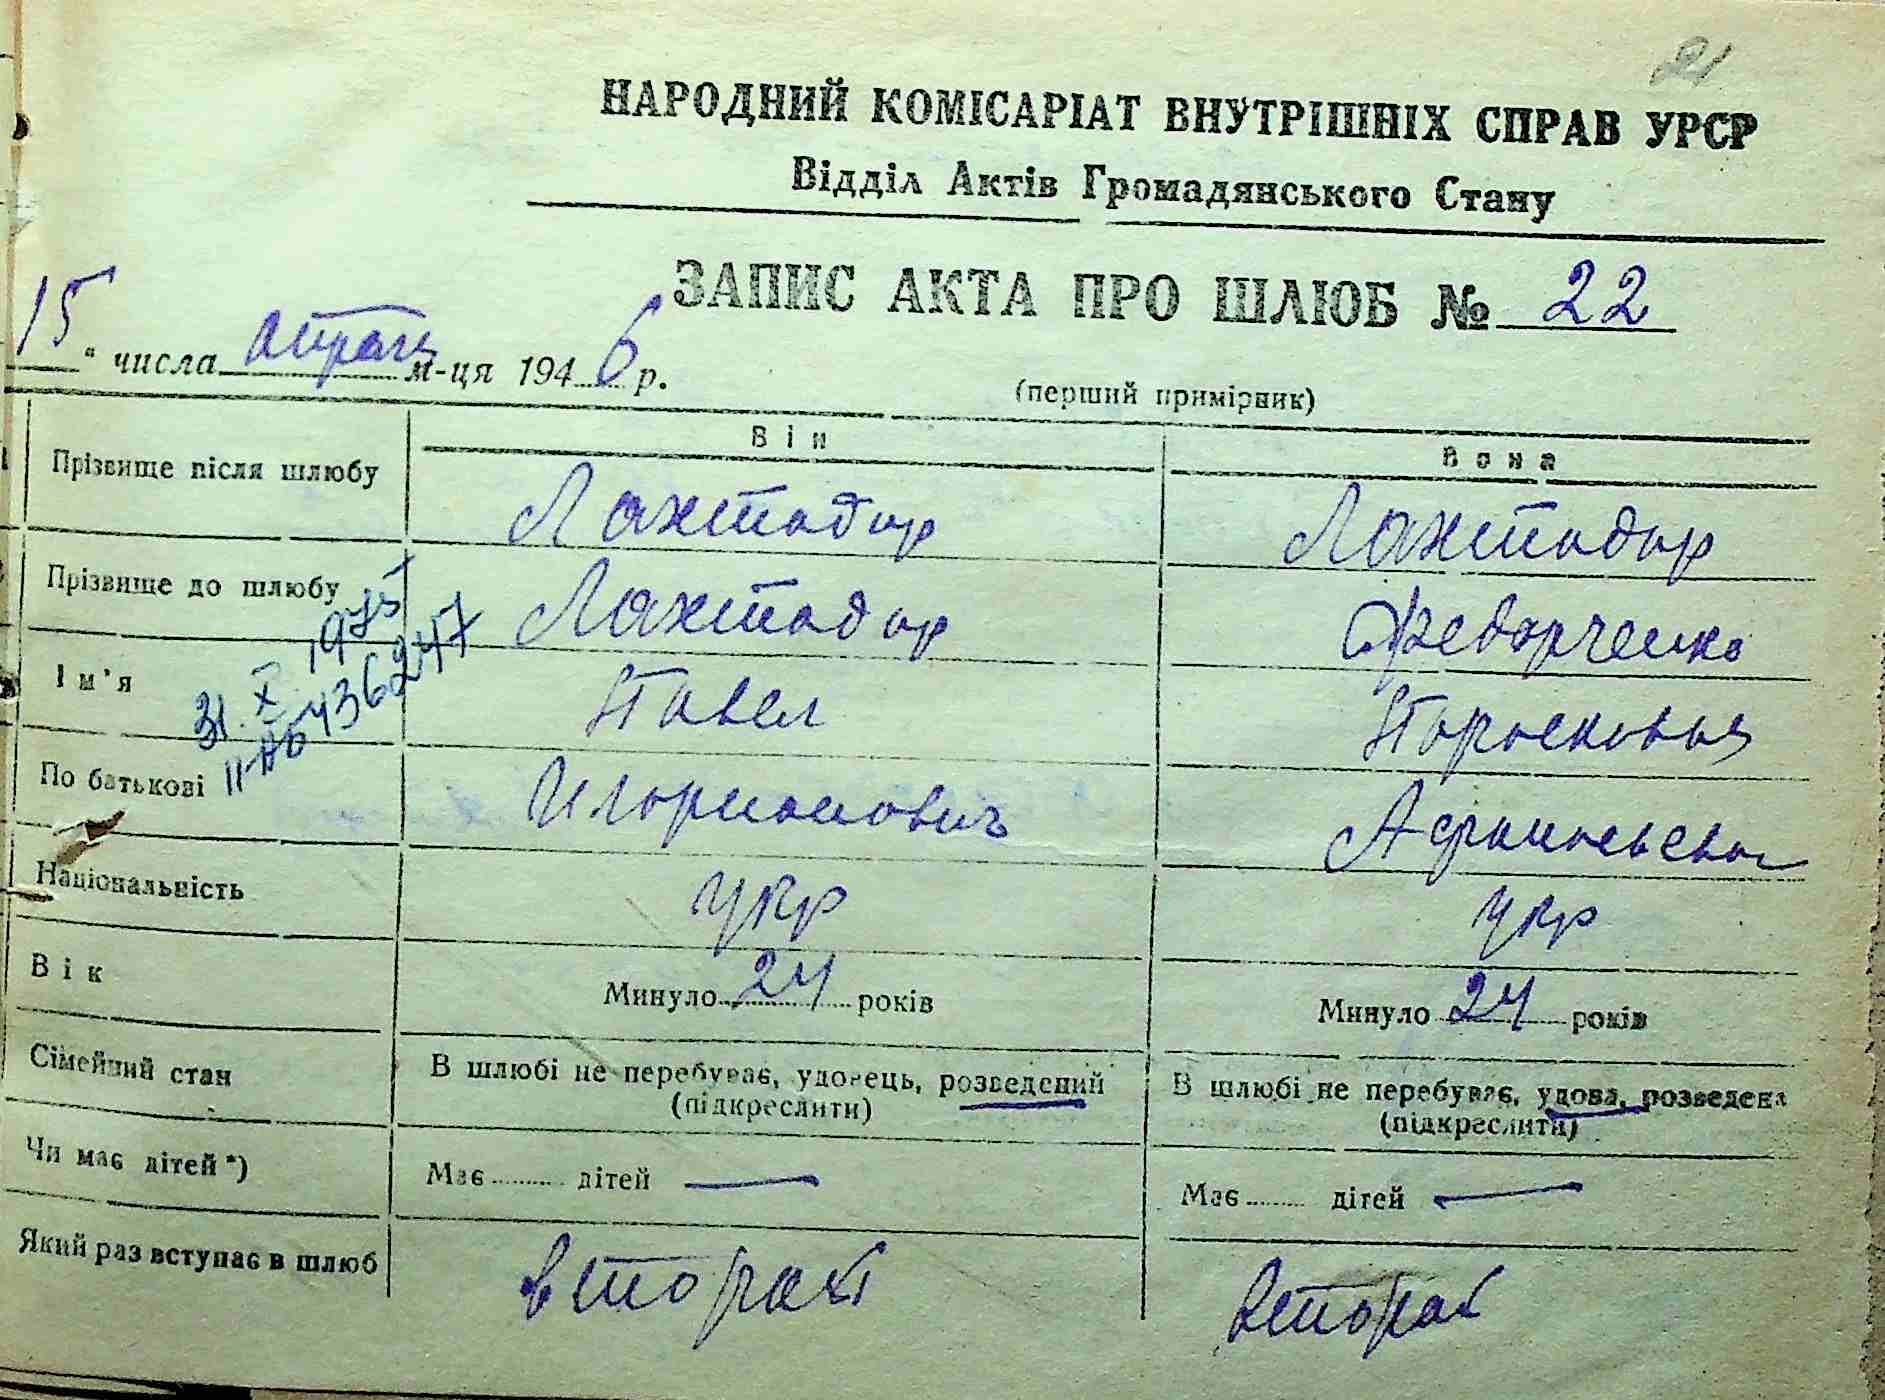 21
НАРОДНИЙ КОМІСАРІАТ ВНУТРІШНІХ СПРАВ УРСР
Відділ Актів Громадянського Стану
ЗАПИС АКТА ПРО ШЛЮБ № 22
15 " числа м-ця 1946 р.
(перший примірник)
Він Вона
Прізвище після шлюбу Лахтадир Лахтадир
Прізвище до шлюбу Лахтадир Федорченко
Ім'я Павел Парасковья
31.X.1975
II-НБ 436247
По батькові Афанасьевна
Національність укр укр
Вік Минуло 24 років Минуло 24 років
Сімейний стан В шлюбі не перебуває, удовець, розведений В шлюбі не перебуває, удова, розведена
(підкреслити) (підкреслити)
Чи має дітей*) Має ......... дітей — Має ......... дітей —
Який раз вступає в шлюб второй второй